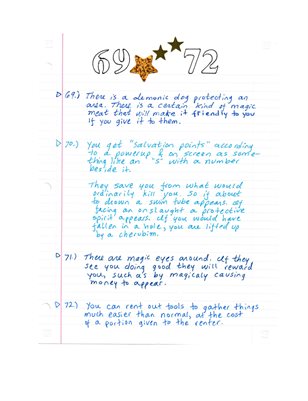 69 72
69.) There is a demonic dog protecting an
area. There is a certain kind of magic
meat that will make it friendly to you
if you give it to them.
70.) You get "salvation points" according
to a powerup & on screen as some-
thing like an "S" with a number
beside it.
They save you from what would
ordinarily kill you. So if about
to drown a swim tube appears. If
facing an onslaught a protective
spirit appears. If you would have
fallen in a hole, you are lifted up
by a cherubim.
71.) There are magic eyes around. If they
see you doing good they will reward
you, such as by magicaly causing
money to appear.
72.) You can rent out tools to gather things
much easier than normal, at the cost
of a portion given to the renter.